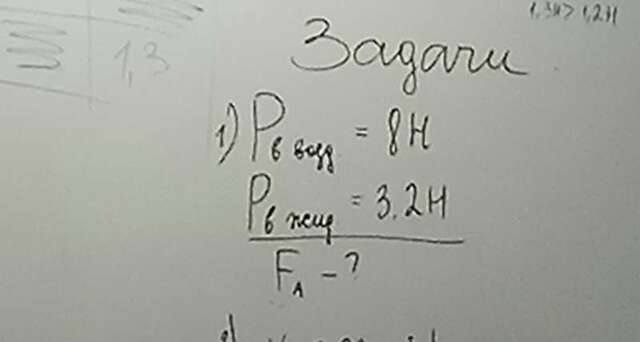 1,3н > 1,2Н
1,3
Задачи
1) Pв возд = 8Н
Pв жид = 3,2Н
FА - ?
2)